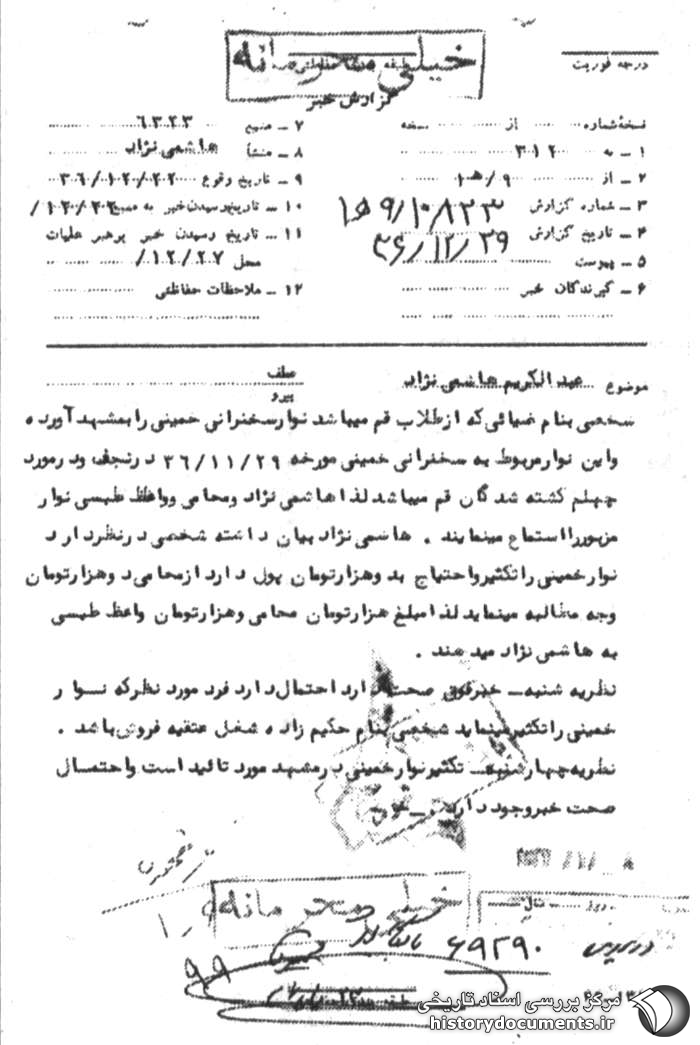 خیلی محرمانه
درجه فوریت
گزارش خبر
نسخه شماره از نسخه
۱ ـ به ۳۱۲
۲ ـ از ۹/ه۱
۳ ـ شماره گزارش ۱۰۸۲۳/۹ه۱
۴ ـ تاریخ گزارش ۳۶/۱۲/۲۹
۵ ـ پیوست
۶ ـ گیرندگان خبر
۷ ـ منبع ۶۳۲۳
۸ ـ منشأ هاشمی نژاد
۹ ـ تاریخ وقوع
۱۰ ـ تاریخ رسیدن خبر به منبع
۱۱ ـ تاریخ رسیدن خبر برهبر عملیات
محل ۱۲/۲۷/
۱۲ ـ ملاحظات حفاظتی
موضوع عبدالکریم هاشمی نژاد
عطف
پیرو
شخصی بنام ضیائی که از طلاب قم میباشد نوار سخنرانی خمینی را بمشهد آورده
و این نوار مربوط به سخنرانی خمینی مورخه ۳۶/۱۱/۲۹ در نجف و در مورد
چهلم کشته شدگان قم میباشد لذا هاشمی نژاد و محامی و واعظ طبسی نوار
مزبور را استماع مینمایند . هاشمی نژاد بیان داشته شخصی در نظر دارد
نوار خمینی را تکثیر و احتیاج بدو هزار تومان پول دارد از محامی دو هزار تومان
وجه مطالبه مینماید لذا مبلغ هزار تومان محامی و هزار تومان واعظ طبسی
به هاشمی نژاد میدهند .
نظریه شنبه ـ خبر فوق صحت دارد احتمال دارد فرد مورد نظر که نوار
خمینی را تکثیر مینماید شخصی بنام حکیم زاده شغل عتیقه فروش باشد .
نظریه چهارشنبه ـ تکثیر نوار خمینی در مشهد مورد تائید است و احتمال
صحت خبر وجود دارد .
خیلی محرمانه
۶۹۲۹۰
۹۹
مرکز بررسی اسناد تاریخی
historydocuments.ir